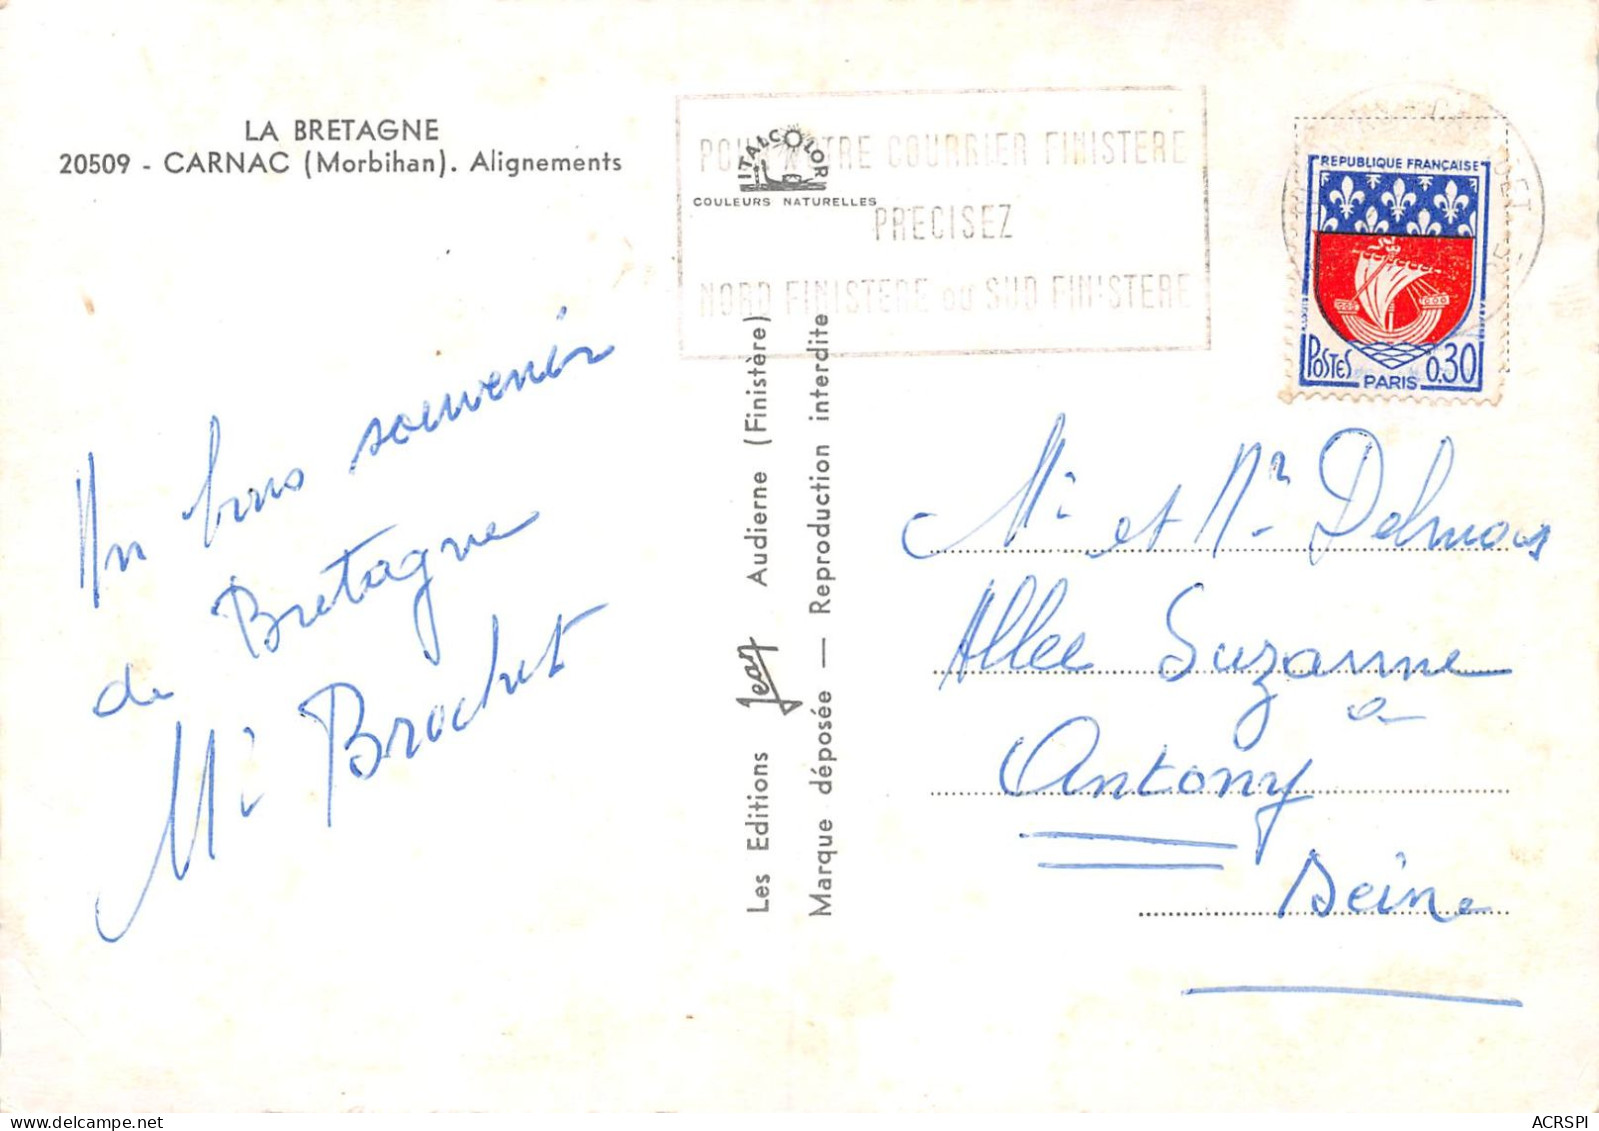 LA BRETAGNE
20509 - CARNAC (Morbihan). Alignements
ITALCOLOR
COULEURS NATURELLES
POUR VOTRE COURRIER FINISTERE
PRECISEZ
NORD FINISTERE OU SUD FINISTERE
REPUBLIQUE FRANÇAISE
POSTES
0,30
PARIS
Un bon souvenir
de Bretagne
Mr Brochet
Les Editions Jean Audierne (Finistère)
Marque déposée — Reproduction interdite
Mr et Mr Delmas
Allee Suzanne
a
Antony
Seine
ACRSPI